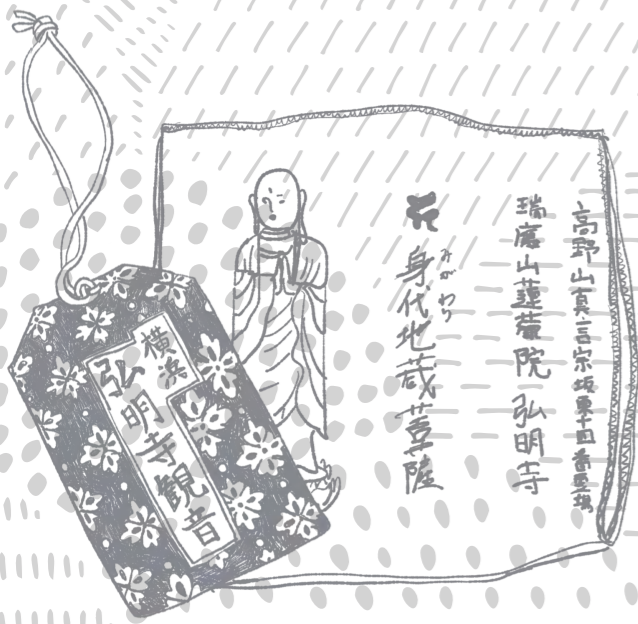 高野山真言宗坂東十四番霊場
瑞應山蓮華院 弘明寺
みがわり
身代地蔵菩薩
横浜
弘明寺観音